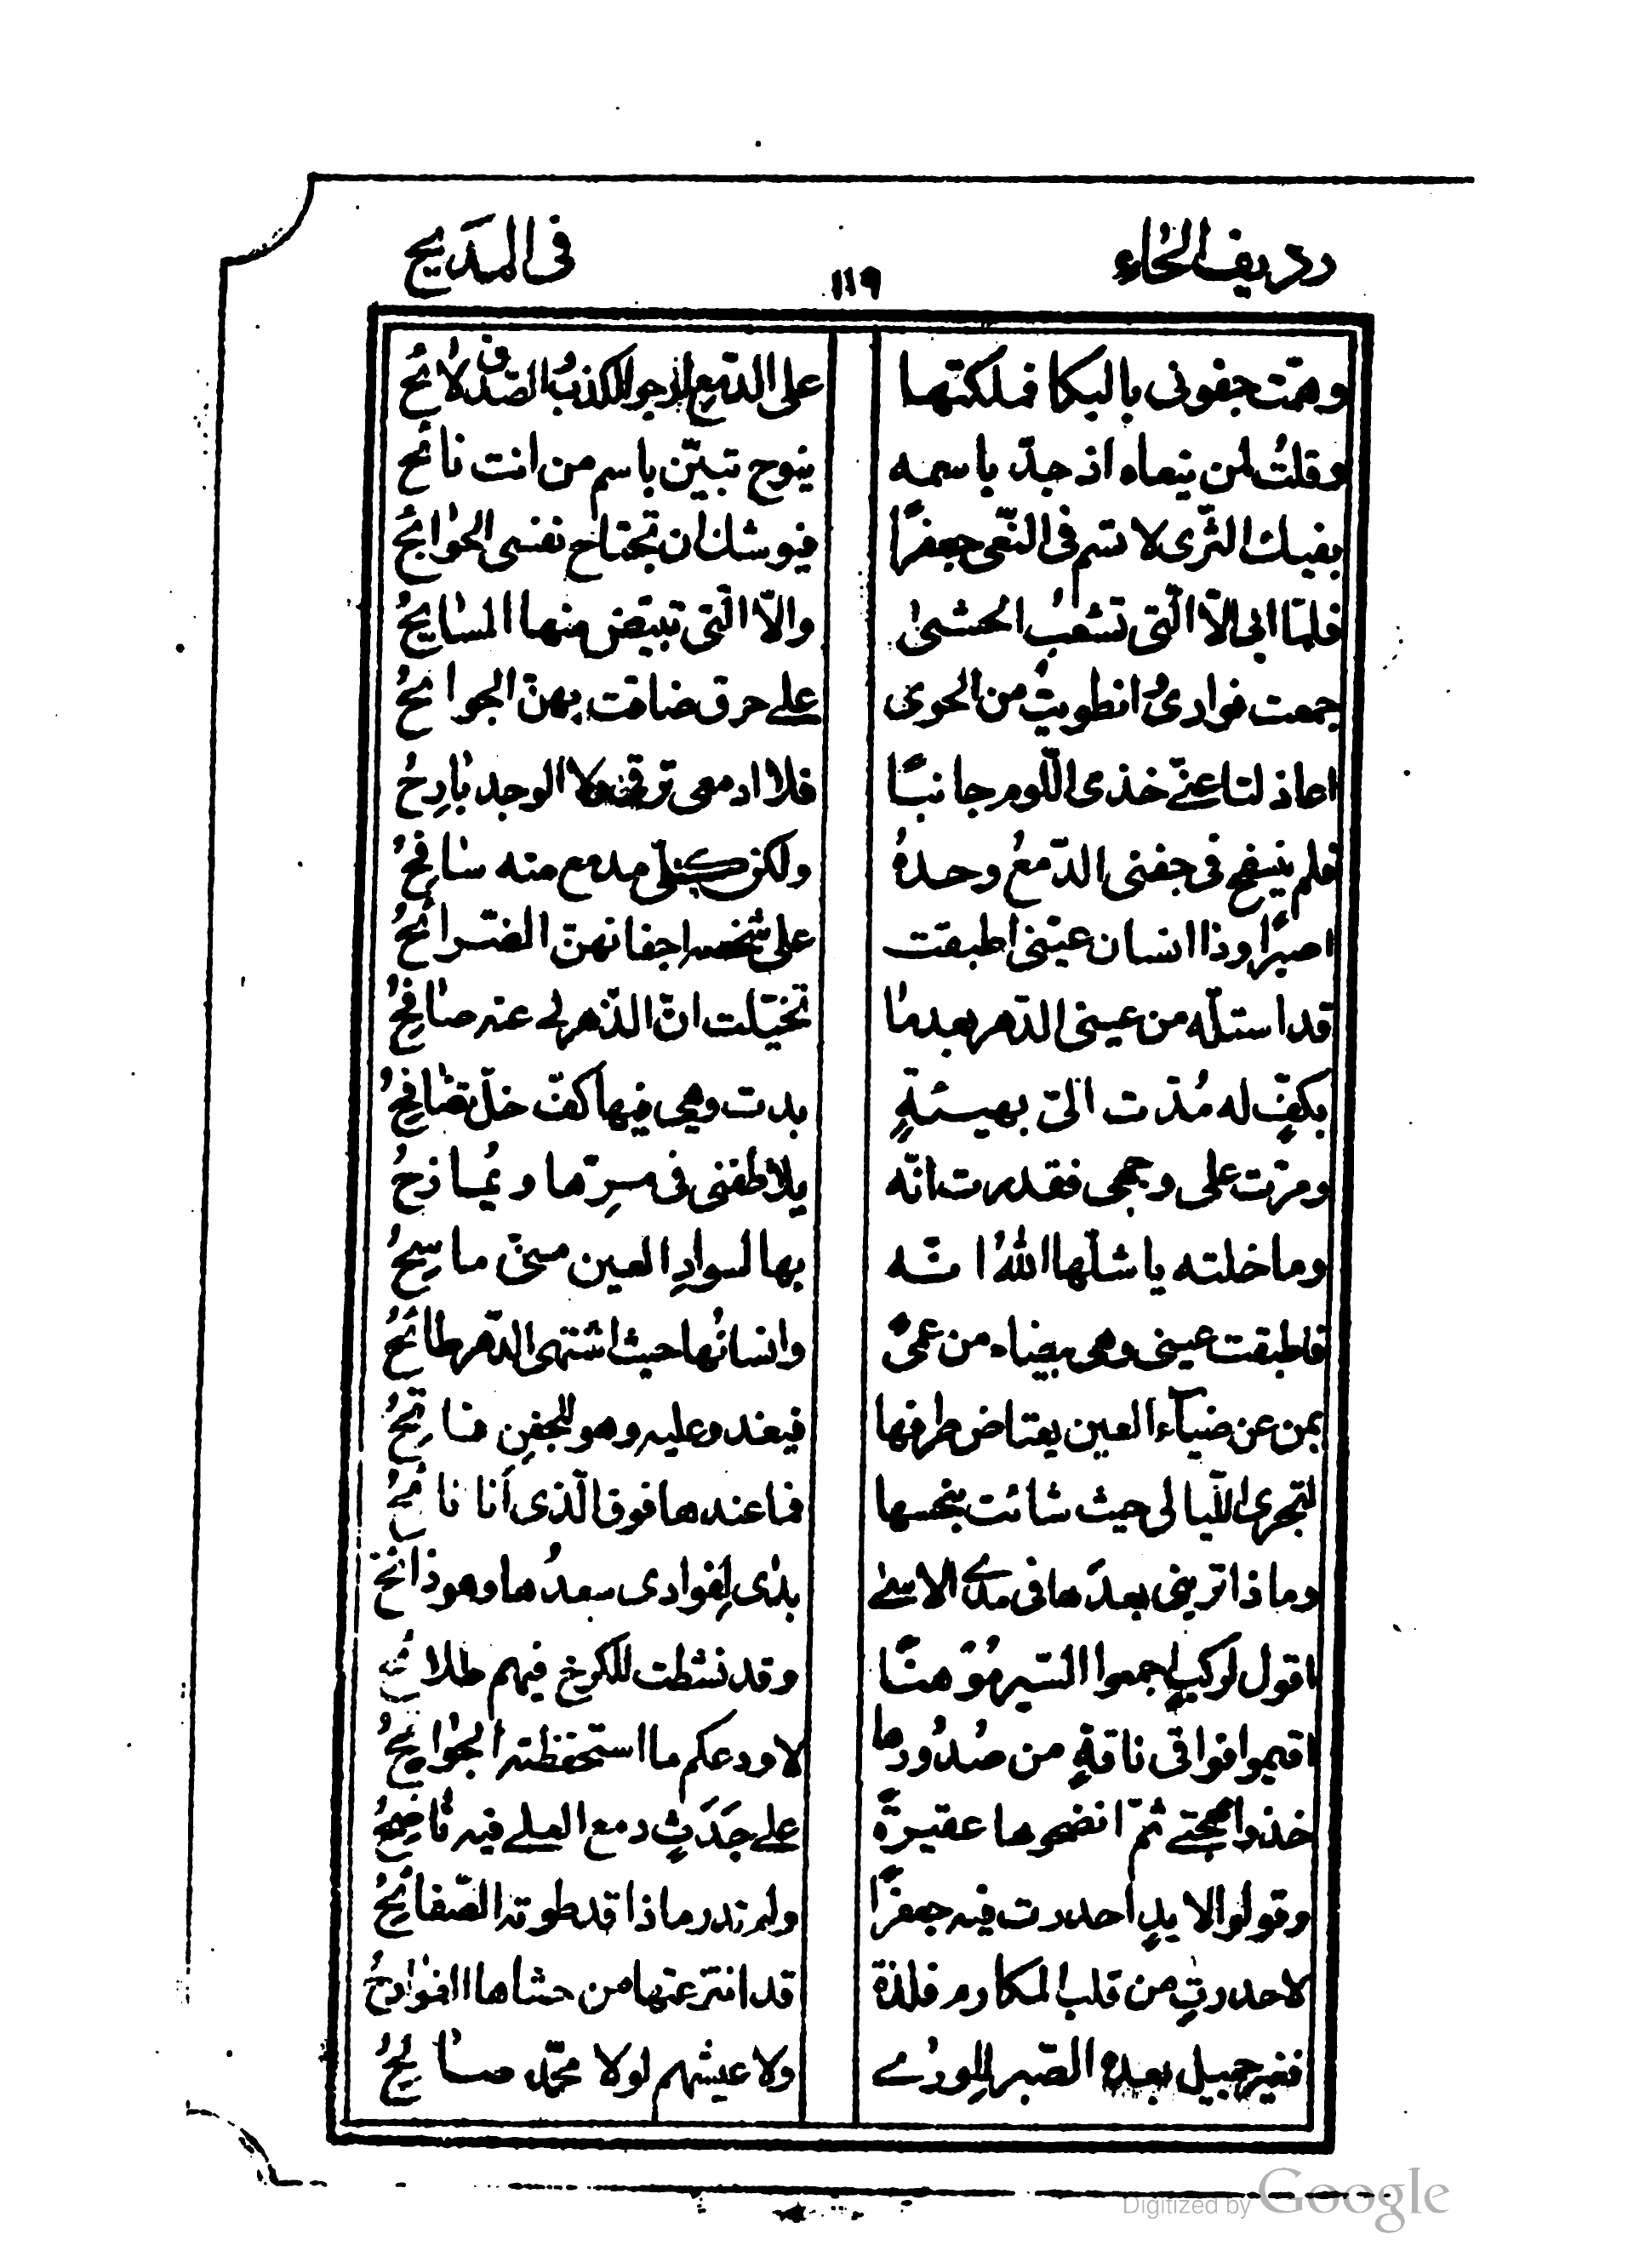 رديف الحاء ١١٩ فى المديح
وهمّت جفونى بالبكا فملكتها على الدّمع ارجو الكذب الصّدق لائحُ
وقلتُ لمن ينعاه اذ جدّ باسمه ينوح تبيّن باسم من انت نائحُ
بفيك الثّرى لا تسم فى النّعى جعفرًا فيوشك ان تجتاح نفسى الجوائحُ
فلمّا ابى الّا الّتى تشعب الحشىٰ والّا الّتى تبيّض منها المسايحُ
جمعت فوادى وُانطويتُ من الجوى علے حرق ضاقت بهنّ الجوانحُ
اعاذلتا عنّے خذى اللّوم جانبًا فلا ادمعى ترقى ولا الوجد بارحُ
فلم ينسفح فى جفنى الدّمعُ وحدهُ ولكن كبلى مدمع منه سافحُ
اصبرًا وذا انسان عينى اطبقت على شخصه اجفانهنّ الضّرائحُ
قد استلّه من عينى الدّهر بعدما تخيّلت انّ الدّهر لى عنه صافحُ
بكفٍّ له مُدّت الىّ بهيئةٍ بدت وهى فيها كفّ خلّ تصافحُ
ومرّت على وجهى فقدرت انّه يلاطفنى فى مسرّها ويُمازحُ
وما خلته يا شلّها اللهُ انّه بها لسوادِ العين منّى ماسحُ
فاطبقت عينى وهى بيضاء من عمًى وانسانُها حيث اشتهى الدّهر طائحُ
بمن عن ضيآء العين يعتاض طرفها فيغدو عليه وهو للجفن فاتحُ
لتجرى اللّيالى حيث شائت بنحسها فما عندها فوق الّذى أنا نائحُ
وما ذا ترينى بعدَها فى مدَے الاسےٰ بدٰى لِفوادى سعدُها وهو ذابحُ
اقول لركبٍ اجمعوا السّير مُوْهنًا وقد نشطت للكرخ فيهم طلائحُ
اقيموا فواقى ناقةٍ من صُدُورها لاودعكم ما استحفظته الجوانحُ
خذوا مهجتے ثمّ انضحوها عقيرةً علے جَدَثٍ دمع العلے فيه ناضحُ
وقولوا لا يدٍ احدرت فيه جعفرًا ولم تدر ماذا قد طوته الصّفائحُ
لاحدرتِ من قلب المكارم فلذة قد انتزعتها من حشاها الفوادحُ
فغير جميل بعده الصّبر للورٰے ولا عيشهم لولا محمّد صالحُ
Digitized by Google